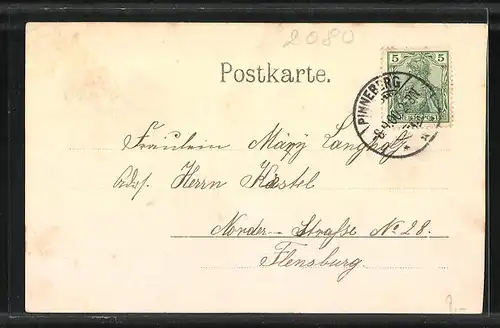 2080
Postkarte.
5 5
PINNEBERG
Fräulein Mary Langhof
Adr. Herrn Kastel
Norder-Straße No 28.
Flensburg.